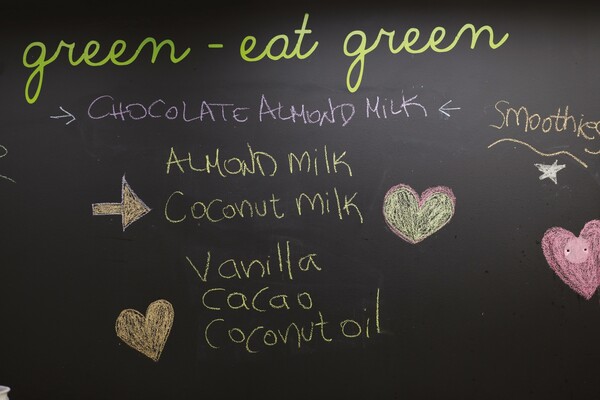 green - eat green
CHOCOLATE ALMOND MILK
Smoothies
ALMOND MILK
Coconut MILK
Vanilla
cacao
Coconut oil